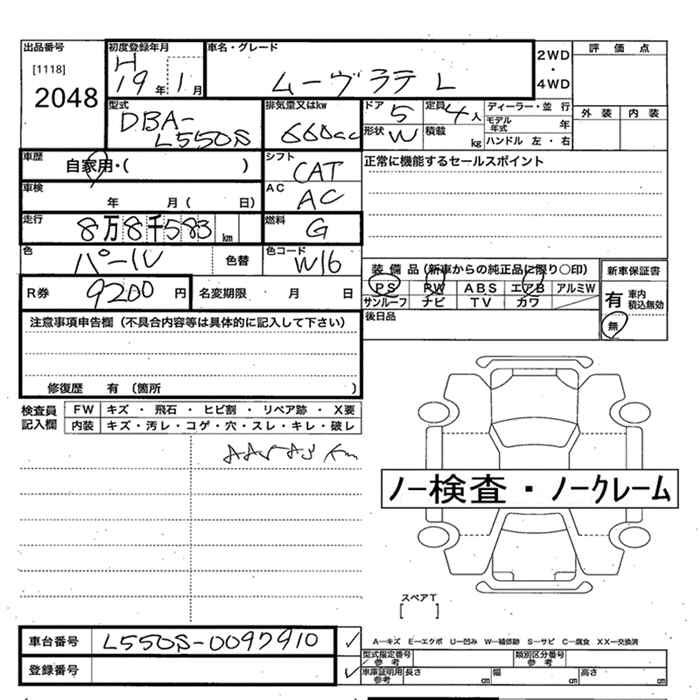 出品番号
[1118]
2048
初度登録年月
H
19年 1月
車名・グレード
ムーヴラテ L
2WD
・
4WD
評価点
外装 内装
型式
DBA-
L550S
排気量又はkw
660cc
ドア
5
定員
4人
形状
W
積載
kg
ディーラー・並行
モデル年式 年
ハンドル 左・右
車歴
自家用・( )
シフト
CAT
正常に機能するセールスポイント
車検
年 月( 日)
AC
AC
走行
8万8千583km
燃料
G
色
パール
色替
色コード
W16
R券 9200円
名変期限 月 日
装備品(新車からの純正品に限り○印)
PS PW ABS エアB アルミW
サンルーフ ナビ TV カワ
後日品
新車保証書
有 車内積込無効
無
注意事項申告欄(不具合内容等は具体的に記入して下さい)
修復歴 有(箇所 )
検査員記入欄
FW キズ・飛石・ヒビ割・リペア跡・X要
内装 キズ・汚レ・コゲ・穴・スレ・キレ・破レ
km
ノー検査・ノークレーム
スペアT
[ ]
車台番号 L550S-0097910
登録番号
A―キズ E―エクボ U―凹み W―補修跡 S―サビ C―腐食 XX―交換済
型式指定番号/参考
類別区分番号/参考
車庫証明用参考 長さ cm 幅 cm 高さ cm